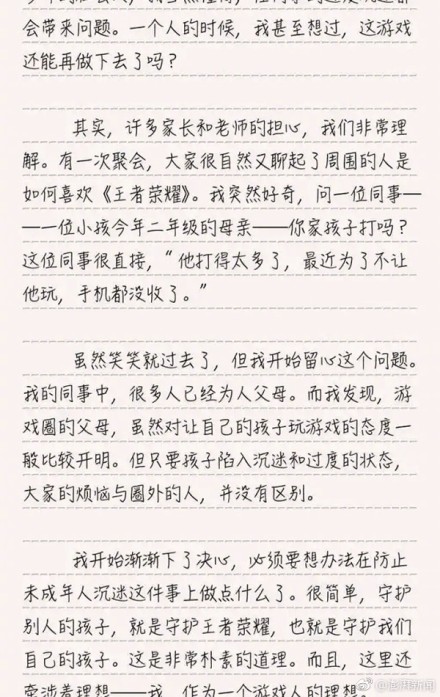 会带来问题。一个人的时候，我甚至想过，这游戏
还能再做下去了吗？
其实，许多家长和老师的担心，我们非常理
解。有一次聚会，大家很自然又聊起了周围的人是
如何喜欢《王者荣耀》。我突然好奇，问一位同事—
—一位小孩今年二年级的母亲——你家孩子打吗？
这位同事很直接，“他打得太多了，最近为了不让
他玩，手机都没收了。”
虽然笑笑就过去了，但我开始留心这个问题。
我的同事中，很多人已经为人父母。而我发现，游
戏圈的父母，虽然对让自己的孩子玩游戏的态度一
般比较开明。但只要孩子陷入沉迷和过度的状态，
大家的烦恼与圈外的人，并没有区别。
我开始渐渐下了决心，必须要想办法在防止
未成年人沉迷这件事上做点什么了。很简单，守护
别人的孩子，就是守护王者荣耀，也就是守护我们
自己的孩子。这是非常朴素的道理。而且，这里还
牵涉着理想——我，作为一个游戏人的理想
@澎湃新闻